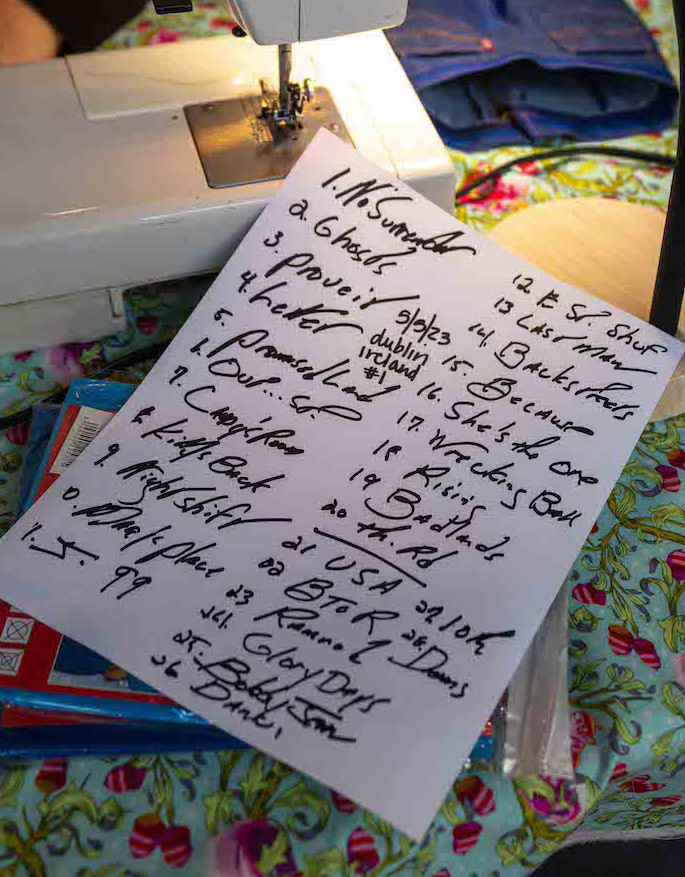 1. No Surrender
2. Ghosts
3. Prove it
4. Letter
5. Promised Land
6. Out... St.
7. Candy's Room
8. Kitty's Back
9. Nightshift
0. Mary's Place
1. J. 99
5/5/23
dublin
ireland
#1
12 E St. Shuf
13 Last Man
14. Backstreets
15. Because
16. She's the One
17. Wrecking Ball
18 Rising
19 Badlands
20 Th. Rd
21 USA
22 BTOR
23 Ramrod
24. Glory Days
25. Bobby Jean
26 Danc,
27 10th